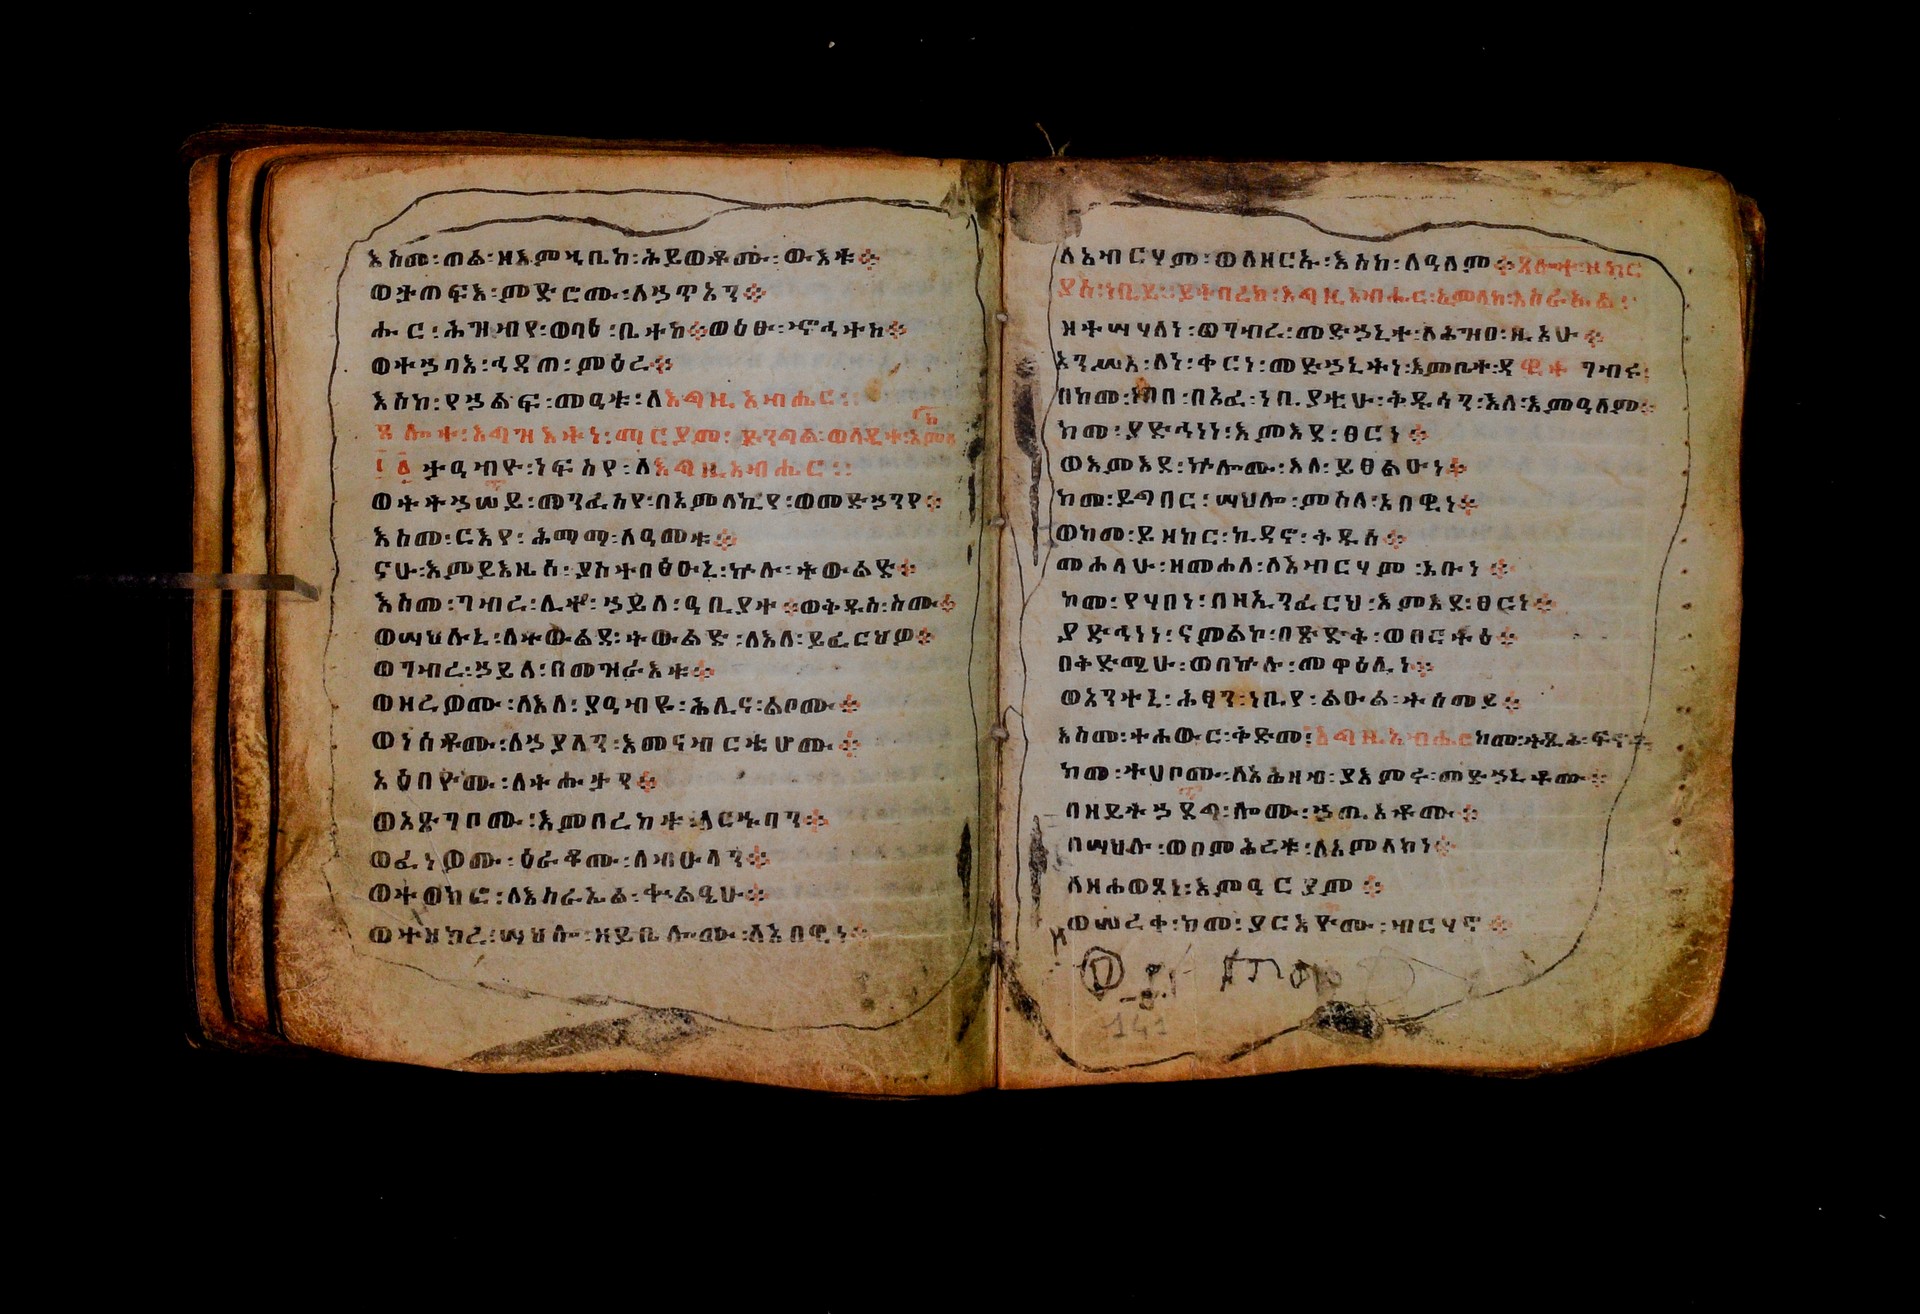 እስመ፡ጠል፡ዘእምኀቤከ፡ሕይወቶሙ፡ውእቱ፨
ወትጠፍእ፡ምድሮሙ፡ለኃጥኣን፨
ሑር፡ሕዝብየ፡ወባዕ፡ቤተከ፨ወዕፁ፡ኆኅተከ፨
ወተኃባእ፡ኅዳጠ፡ምዕረ፨
እስከ፡የኃልፍ፡መዓቱ፡ለእግዚአብሔር።
ጸሎተ፡እግዝእትነ፡ማርያም፡ድንግል፡ወላዲተ፡አምላክ
፲ ፩ ታዓብዮ፡ነፍስየ፡ለእግዚአብሔር።
ወትትኃሠይ፡መንፈስየ፡በአምላኪየ፡ወመድኃንየ፨
እስመ፡ርእየ፡ሕማማ፡ለዓመቱ፨
ናሁ፡እምይእዜሰ፡ያስተበፅዑኒ፡ኵሉ፡ትውልድ፨
እስመ፡ገብረ፡ሊተ፡ኃይለ፡ዓቢያተ፨ወቅዱስ፡ስሙ፨
ወሣህሉኒ፡ለትውልደ፡ትውልድ፡ለእለ፡ይፈርህዎ፨
ወገብረ፡ኃይለ፡በመዝራእቱ፨
ወዘረዎሙ፡ለእለ፡ያዓብዩ፡ሕሊና፡ልቦሙ፨
ወነሰቶሙ፡ለኃያላን፡እመናብርቲሆሙ፨
አዕበዮሙ፡ለትሑታን፨
ወአጽገቦሙ፡እምበረከቱ፡ለርኁባን፨
ወፈነዎሙ፡ዕራቆሙ፡ለብዑላን፨
ወተወክፎ፡ለእስራኤል፡ቍልዔሁ፨
ወተዘከረ፡ሣህሎ፡ዘይቤሎሙ፡ለአበዊነ፨
ለአብርሃም፡ወለዘርኡ፡እስከ፡ለዓለም፨ጸሎተ፡ዘካር
ያስ፡ነቢይ፡ይትባረክ፡እግዚአብሔር፡አምላከ፡እስራኤል፡
ዘተሣሃለነ፡ወገብረ፡መድኃኒተ፡ለሕዝበ፡ዚአሁ፨
አንሥአ፡ለነ፡ቀርነ፡መድኃኒትነ፡እምቤተ፡ዳዊት ገብሩ፡
በከመ፡ነበበ፡በአፈ፡ነቢያቲሁ፡ቅዱሳን፡እለ፡እምዓለም፨
ከመ፡ያድኅነነ፡እምእደ፡ፀርነ፨
ወእምእደ፡ኵሎሙ፡እለ፡ይፀልዑነ፨
ከመ፡ይግበር፡ሣህሎ፡ምስለ፡አበዊነ፨
ወከመ፡ይዘከር፡ኪዳኖ፡ቅዱሰ፨
መሐላሁ፡ዘመሐለ፡ለአብርሃም፡አቡነ፨
ከመ፡የሃበነ፡በዘኢንፈርህ፡እምእደ፡ፀርነ፨
ያድኅነነ፡ናምልኮ፡በጽድቅ፡ወበርትዕ፨
በቅድሜሁ፡ወበኵሉ፡መዋዕሊነ፨
ወአንተኒ፡ሕፃን፡ነቢየ፡ልዑል፡ትሰመይ፨
እስመ፡ተሐውር፡ቅድመ፡እግዚአብሔርከመ፡ትጺሕ፡ፍኖቶ
ከመ፡ተሀቦሙ፡ለአሕዛብ፡ያእምሩ፡መድኃኒቶሙ፨
በዘይትኃደግ፡ሎሙ፡ኃጢአቶሙ፨
በሣህሉ፡ወበምሕረቱ፡ለአምላክነ፨
ለዘሐወጸነ፡እምዓርያም፨
ወሠረቀ፡ከመ፡ያርእዮሙ፡ብርሃኖ፨
141